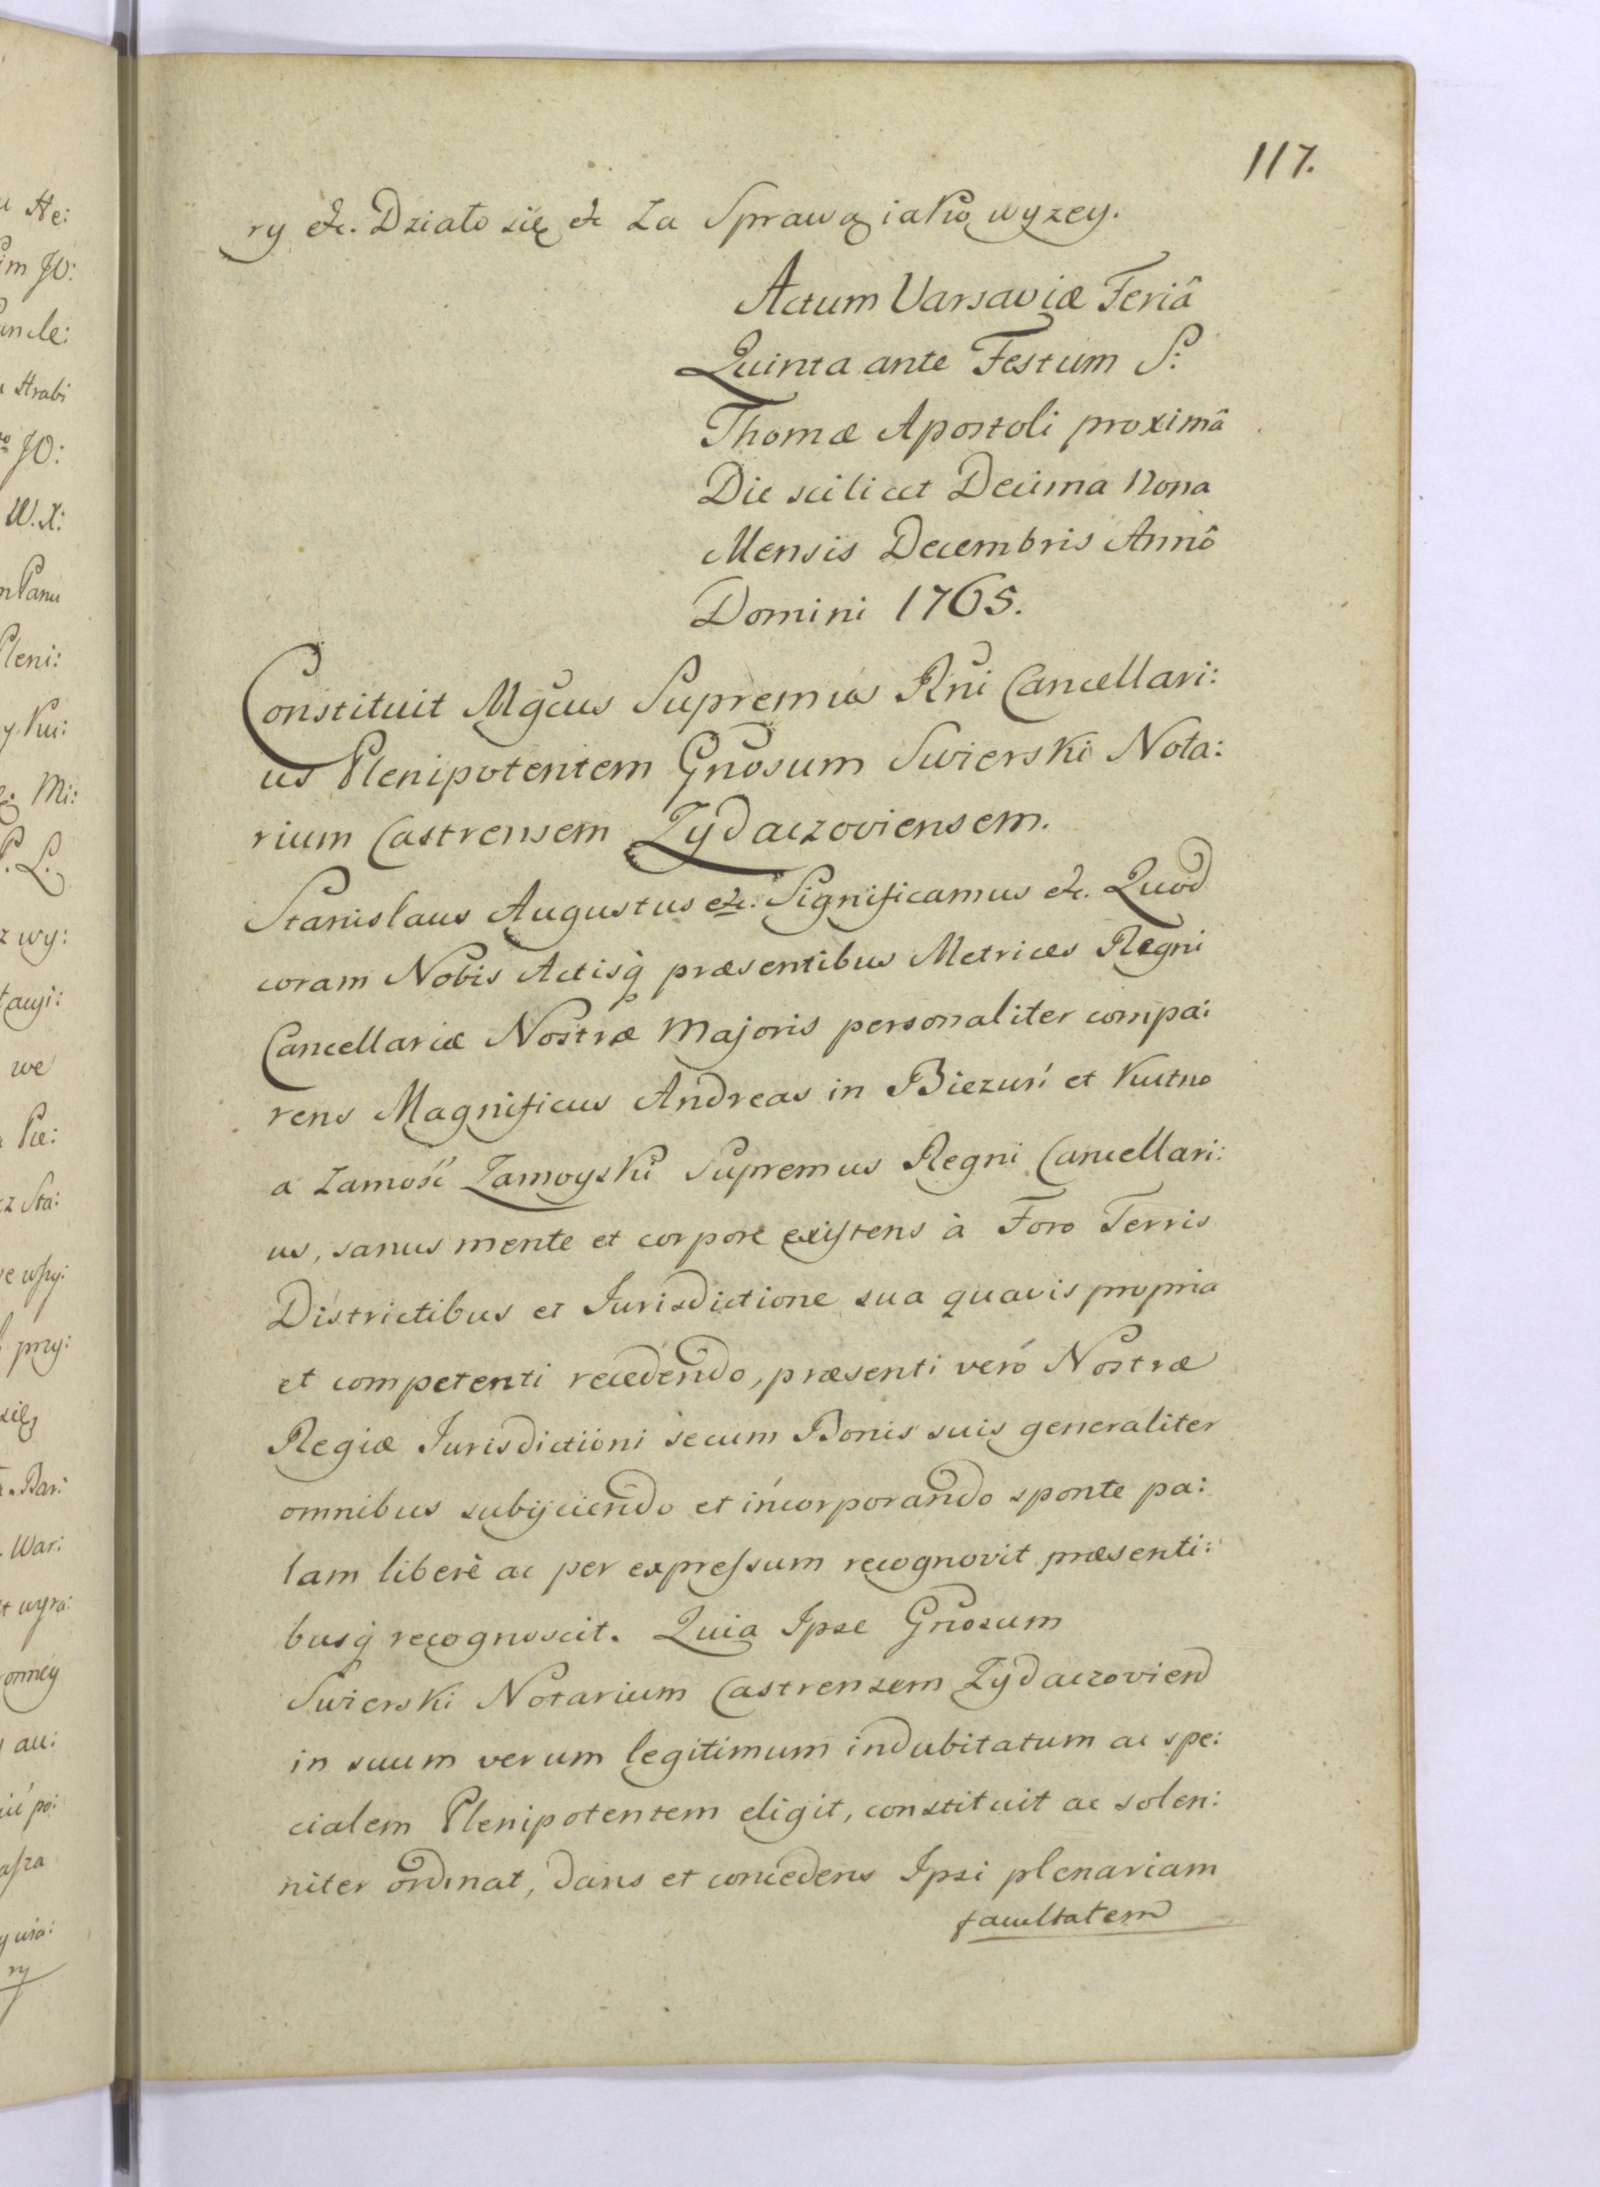 117.
ry etc. Działo się etc Za Sprawą iako wyzey.
Actum Varsaviæ Feriâ
Quinta ante Festum S:
Thomæ Apostoli proximâ
Die scilicet Decima Nona
Mensis Decembris Annô
Domini 1765.
Constituit Mgcus Supremus Rni Cancellari:
us Plenipotentem Gnosum Swierski Nota:
rium Castrensem Zydaczoviensem.
Stanislaus Augustus etc. Significamus etc. Quod
coram Nobis Actisq́ præsentibus Metrices Regni
Cancellariæ Nostræ Majoris personaliter compa:
rens Magnificus Andreas in Biezuń et Kutno
a Zamość Zamoyski Supremus Regni Cancellari:
us, sanus mente et corpore existens à Foro Terris
Districtibus et Jurisdictione sua quavis propria
et competenti recedendo, præsenti veró Nostræ
Regiæ Jurisdictioni secum Bonis suis generaliter
omnibus subijciendo et incorporando sponte pa:
lam liberè ac per expressum recognovit præsenti:
busq́ recognoscit. Quia Ipse Gnosum
Swierski Notarium Castrensem Zydaczovien
in suum verum legitimum indubitatum ac spe:
cialem Plenipotentem eligit, constituit ac solen:
niter ordinat, dans et concedens Ipsi plenariam
facultatem